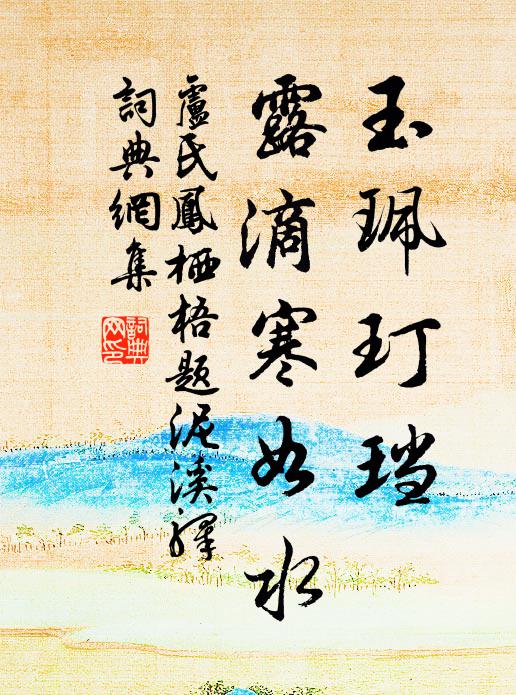 玉珮玎珰
露滴寒如水
盧氏鳳栖梧题泥溪驛
詞典網集
詞典
网印